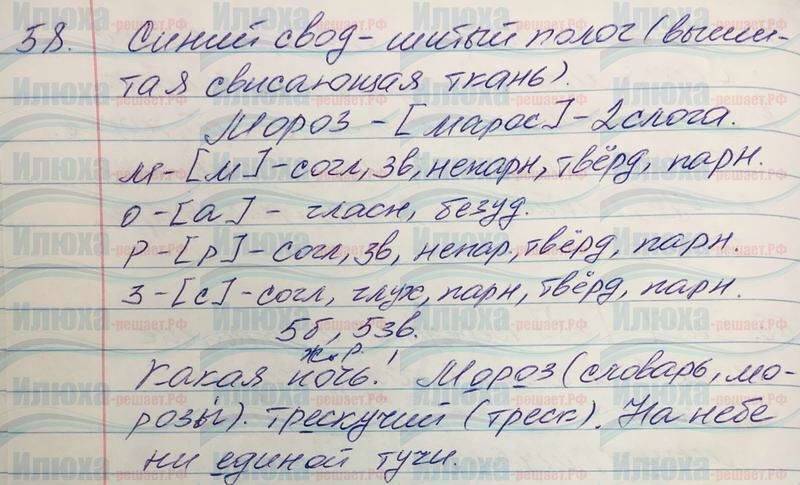 58. Синий свод - шитый полог (выши-
тая свисающая ткань).
Мороз - [марос] - 2 слога.
м - [м] - согл, зв, непарн, твёрд, парн.
о - [а] - гласн, безуд.
р - [р] - согл, зв, непар., твёрд, парн.
з - [с] - согл, глух, парн, твёрд, парн.
5б, 5зв.
ж.р.
Какая ночь! Мороз (словарь, мо-
розы). трескучий (треск). На небе
ни единой тучи.
Илюха-решает.РФ